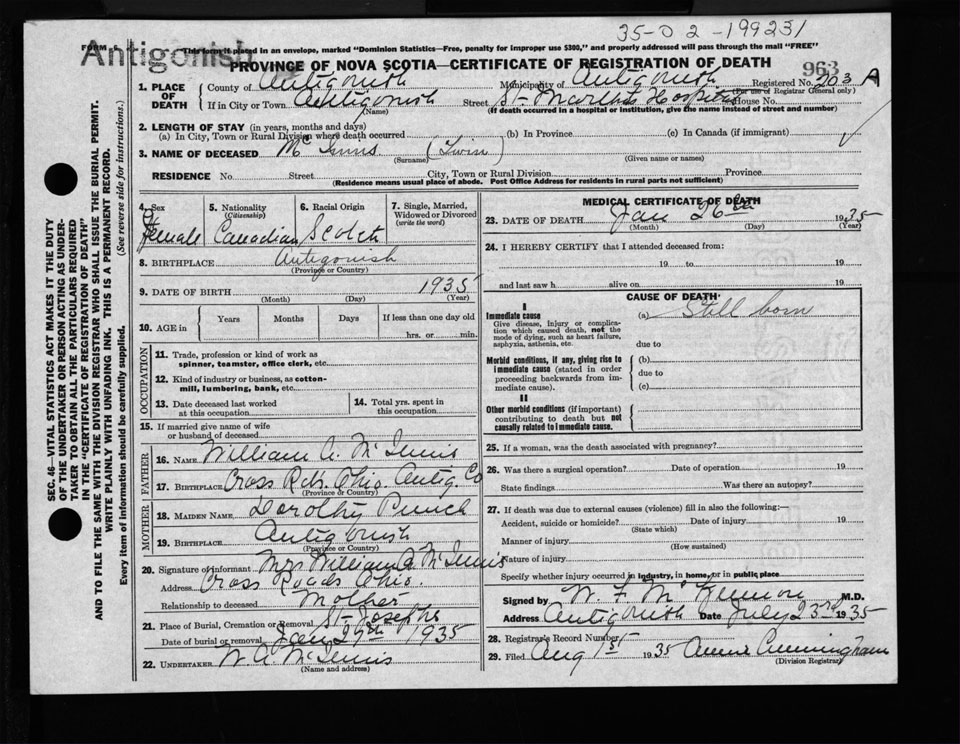 35-02-199231
FORM
Antigonish
This form if placed in an envelope, marked "Dominion Statistics—Free, penalty for improper use $300," and properly addressed will pass through the mail "FREE"
PROVINCE OF NOVA SCOTIA—CERTIFICATE OF REGISTRATION OF DEATH
963
1. PLACE OF DEATH
County of Antigonish Municipality of Antigonish Registered No. 203 A
(For use of Registrar General only)
If in City or Town Antigonish Street St. Martha's Hospital House No.
(Name) (If death occurred in a hospital or institution, give the name instead of street and number)
2. LENGTH OF STAY (in years, months and days)
(a) In City, Town or Rural Division where death occurred (b) In Province (c) In Canada (if immigrant)
3. NAME OF DECEASED McInnis (Twin)
(Surname) (Given name or names)
RESIDENCE No. Street City, Town or Rural Division Province
(Residence means usual place of abode. Post Office Address for residents in rural parts not sufficient)
4. Sex 5. Nationality (Citizenship) 6. Racial Origin 7. Single, Married, Widowed or Divorced (write the word)
Female Canadian Scotch
8. BIRTHPLACE Antigonish
(Province or Country)
9. DATE OF BIRTH 1935
(Month) (Day) (Year)
10. AGE in Years Months Days If less than one day old
hrs. or min.
OCCUPATION
11. Trade, profession or kind of work as spinner, teamster, office clerk, etc.
12. Kind of industry or business, as cotton-mill, lumbering, bank, etc.
13. Date deceased last worked at this occupation
14. Total yrs. spent in this occupation
15. If married give name of wife or husband of deceased
FATHER
16. NAME William A. McInnis
17. BIRTHPLACE Cross Rds. Ohio. Antig. Co
(Province or Country)
MOTHER
18. MAIDEN NAME Dorothy Punch
19. BIRTHPLACE Antigonish
(Province or Country)
20. Signature of informant Mrs William A. McInnis
Address Cross Roads Ohio.
Relationship to deceased Mother
21. Place of Burial, Cremation or Removal St- Josephs
Date of burial or removal Jan 29th 1935
22. UNDERTAKER W. A. McInnis
(Name and address)
MEDICAL CERTIFICATE OF DEATH
23. DATE OF DEATH Jan 26th 1935
(Month) (Day) (Year)
24. I HEREBY CERTIFY that I attended deceased from:
19 to 19
and last saw h alive on 19
CAUSE OF DEATH
I
Immediate cause (a) Still born
Give disease, injury or complication which caused death, not the mode of dying, such as heart failure, asphyxia, asthenia, etc.
due to
Morbid conditions, if any, giving rise to immediate cause (stated in order proceeding backwards from immediate cause).
(b)
due to
(c)
II
Other morbid conditions (if important) contributing to death but not causally related to immediate cause.
25. If a woman, was the death associated with pregnancy?
26. Was there a surgical operation? Date of operation 19
State findings Was there an autopsy?
27. If death was due to external causes (violence) fill in also the following:—
Accident, suicide or homicide? Date of injury 19
(State which)
Manner of injury
(How sustained)
Nature of injury
Specify whether injury occurred in industry, in home, or in public place
Signed by W. F. McKinnon M.D.
Address Antigonish Date July 23rd 1935
28. Registrar's Record Number
29. Filed Aug 1st 1935 Annie Cunningham
(Division Registrar)
SEC. 46—VITAL STATISTICS ACT MAKES IT THE DUTY
OF THE UNDERTAKER OR PERSON ACTING AS UNDER-
TAKER TO OBTAIN ALL THE PARTICULARS REQUIRED
IN THE "CERTIFICATE OF REGISTRATION OF DEATH"
AND TO FILE THE SAME WITH THE DIVISION REGISTRAR WHO SHALL ISSUE THE BURIAL PERMIT.
WRITE PLAINLY WITH UNFADING INK. THIS IS A PERMANENT RECORD.
Every item of information should be carefully supplied. (See reverse side for instructions.)